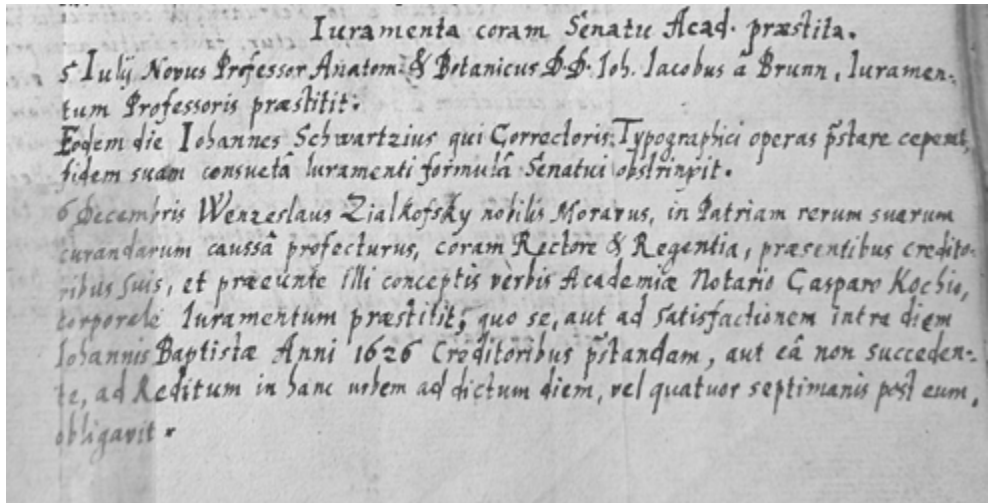 Iuramenta coram Senatu Acad. præstita.
5 Iulij Novus Professor Anatom: & Botanicus D.D. Ioh. Iacobus â Brunn, Iuramen-
tum Professoris præstitit.
Eodem die Iohannes Schwartzius qui Correctoris Typographici operas p̃stare ceperat,
fidem suam consuetâ Iuramenti formulâ Senatui obstrinxit.
6 Decembris Wenzeslaus Zialkofsky nobilis Moravus, in Patriam rerum suarum
curandarum caussâ profecturus, coram Rectore & Regentia, præsentibus credito-
ribus suis, et præeunte illi conceptis verbis Academiæ Notario Casparo Kochio,
corporale Iuramentum præstitit, quo se, aut ad satisfactionem intra diem
Iohannis Baptistæ Anni 1626 Creditoribus p̃standam, aut eâ non succeden-
te, ad Reditum in hanc urbem ad dictum diem, vel quatuor septimanis post eum,
obligavit.